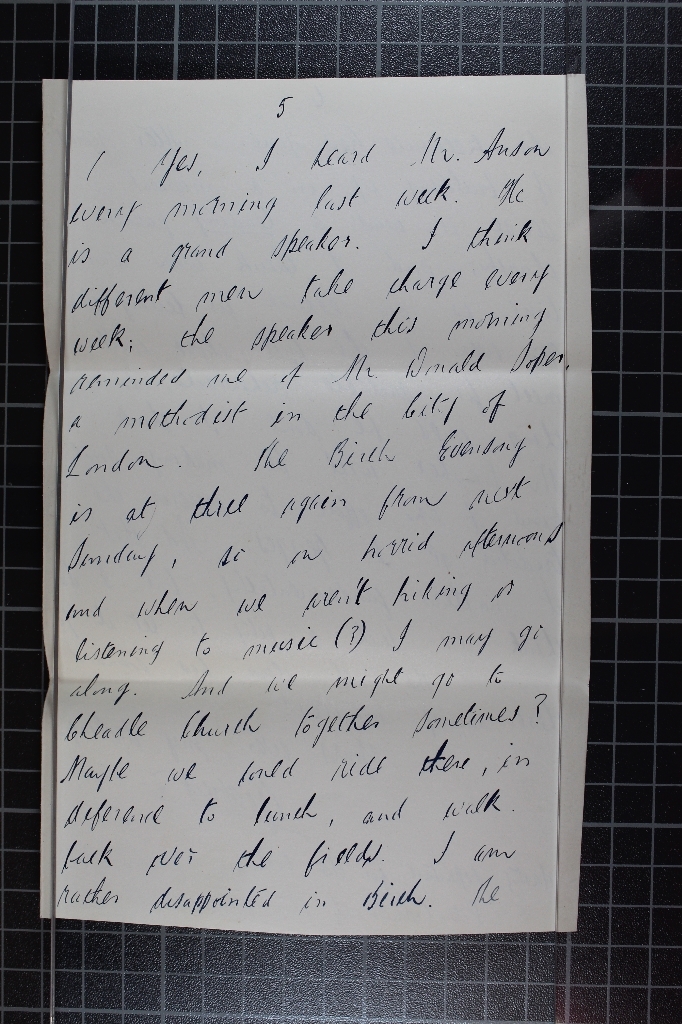 5
( Yes, I heard Mr. Anson
every morning last week. He
is a grand speaker. I think
different men take charge every
week; the speaker this morning
reminded me of Mr. Donald Soper,
a methodist in the City of
London. The Birch Evensong
is at three again from next
Sunday, so on horrid afternoons
and when we aren't hiking or
listening to music (?) I may go
along. And we might go to
Cheadle Church together sometimes?
Maybe we could ride there, in
deference to lunch, and walk
back over the fields. I am
rather disappointed in Birch. The